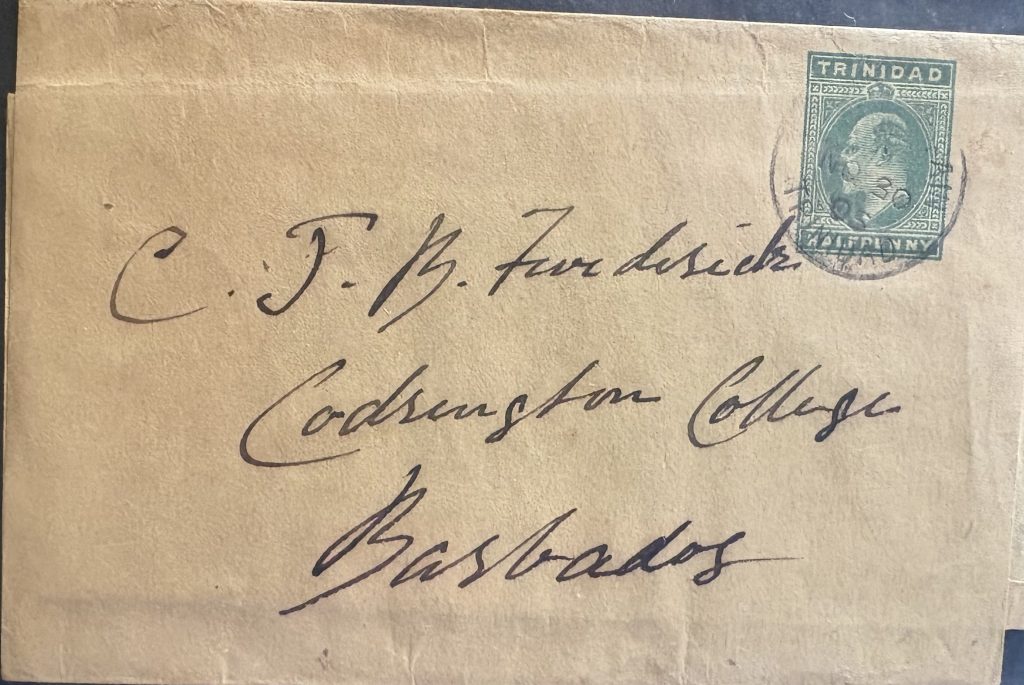 TRINIDAD
HALFPENNY
NO 30
05
TRINIDAD
C. F. B. Frederick
Codrington College
Barbados